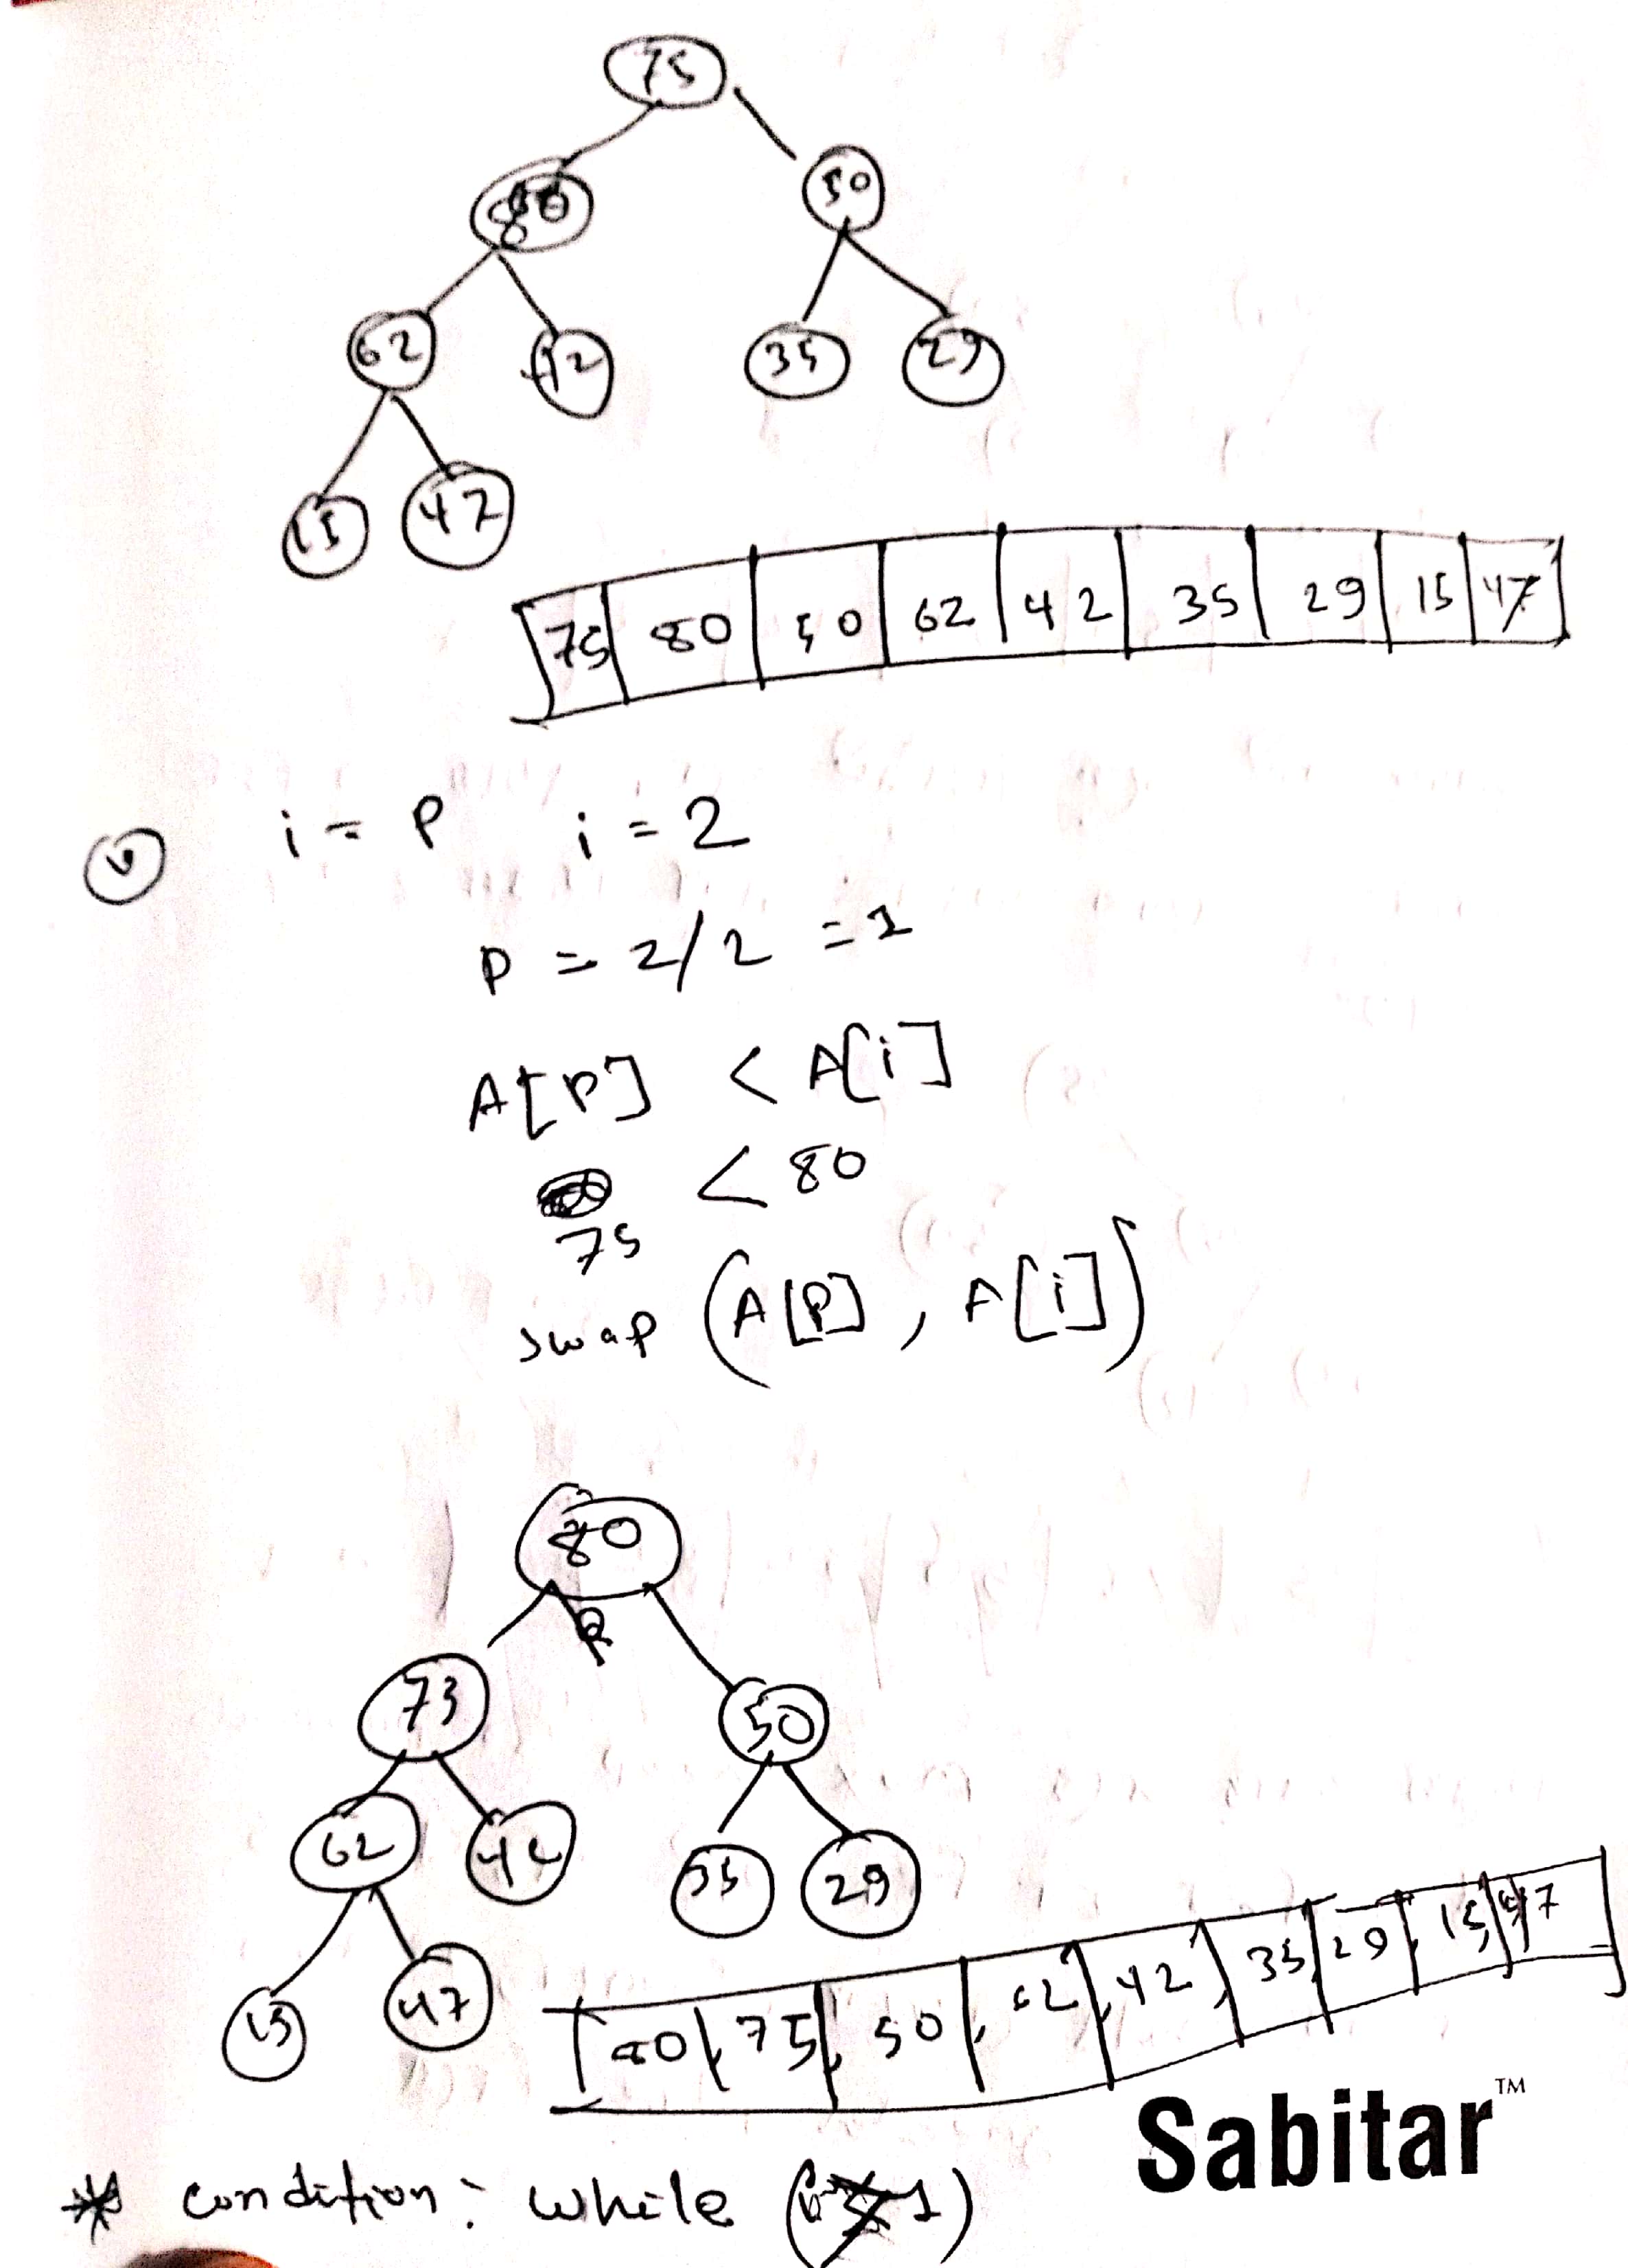 75
80 50
62 42 35 29
15 47
75 80 50 62 42 35 29 15 47
i = P i = 2
P = 2/2 = 1
A[P] < A[i]
< 80
75
swap (A[P], A[i])
80
73 50
62 42 35 29
15 47
80, 75, 50, 62, 42, 35, 29, 15, 47
Sabitar™
* condition: while